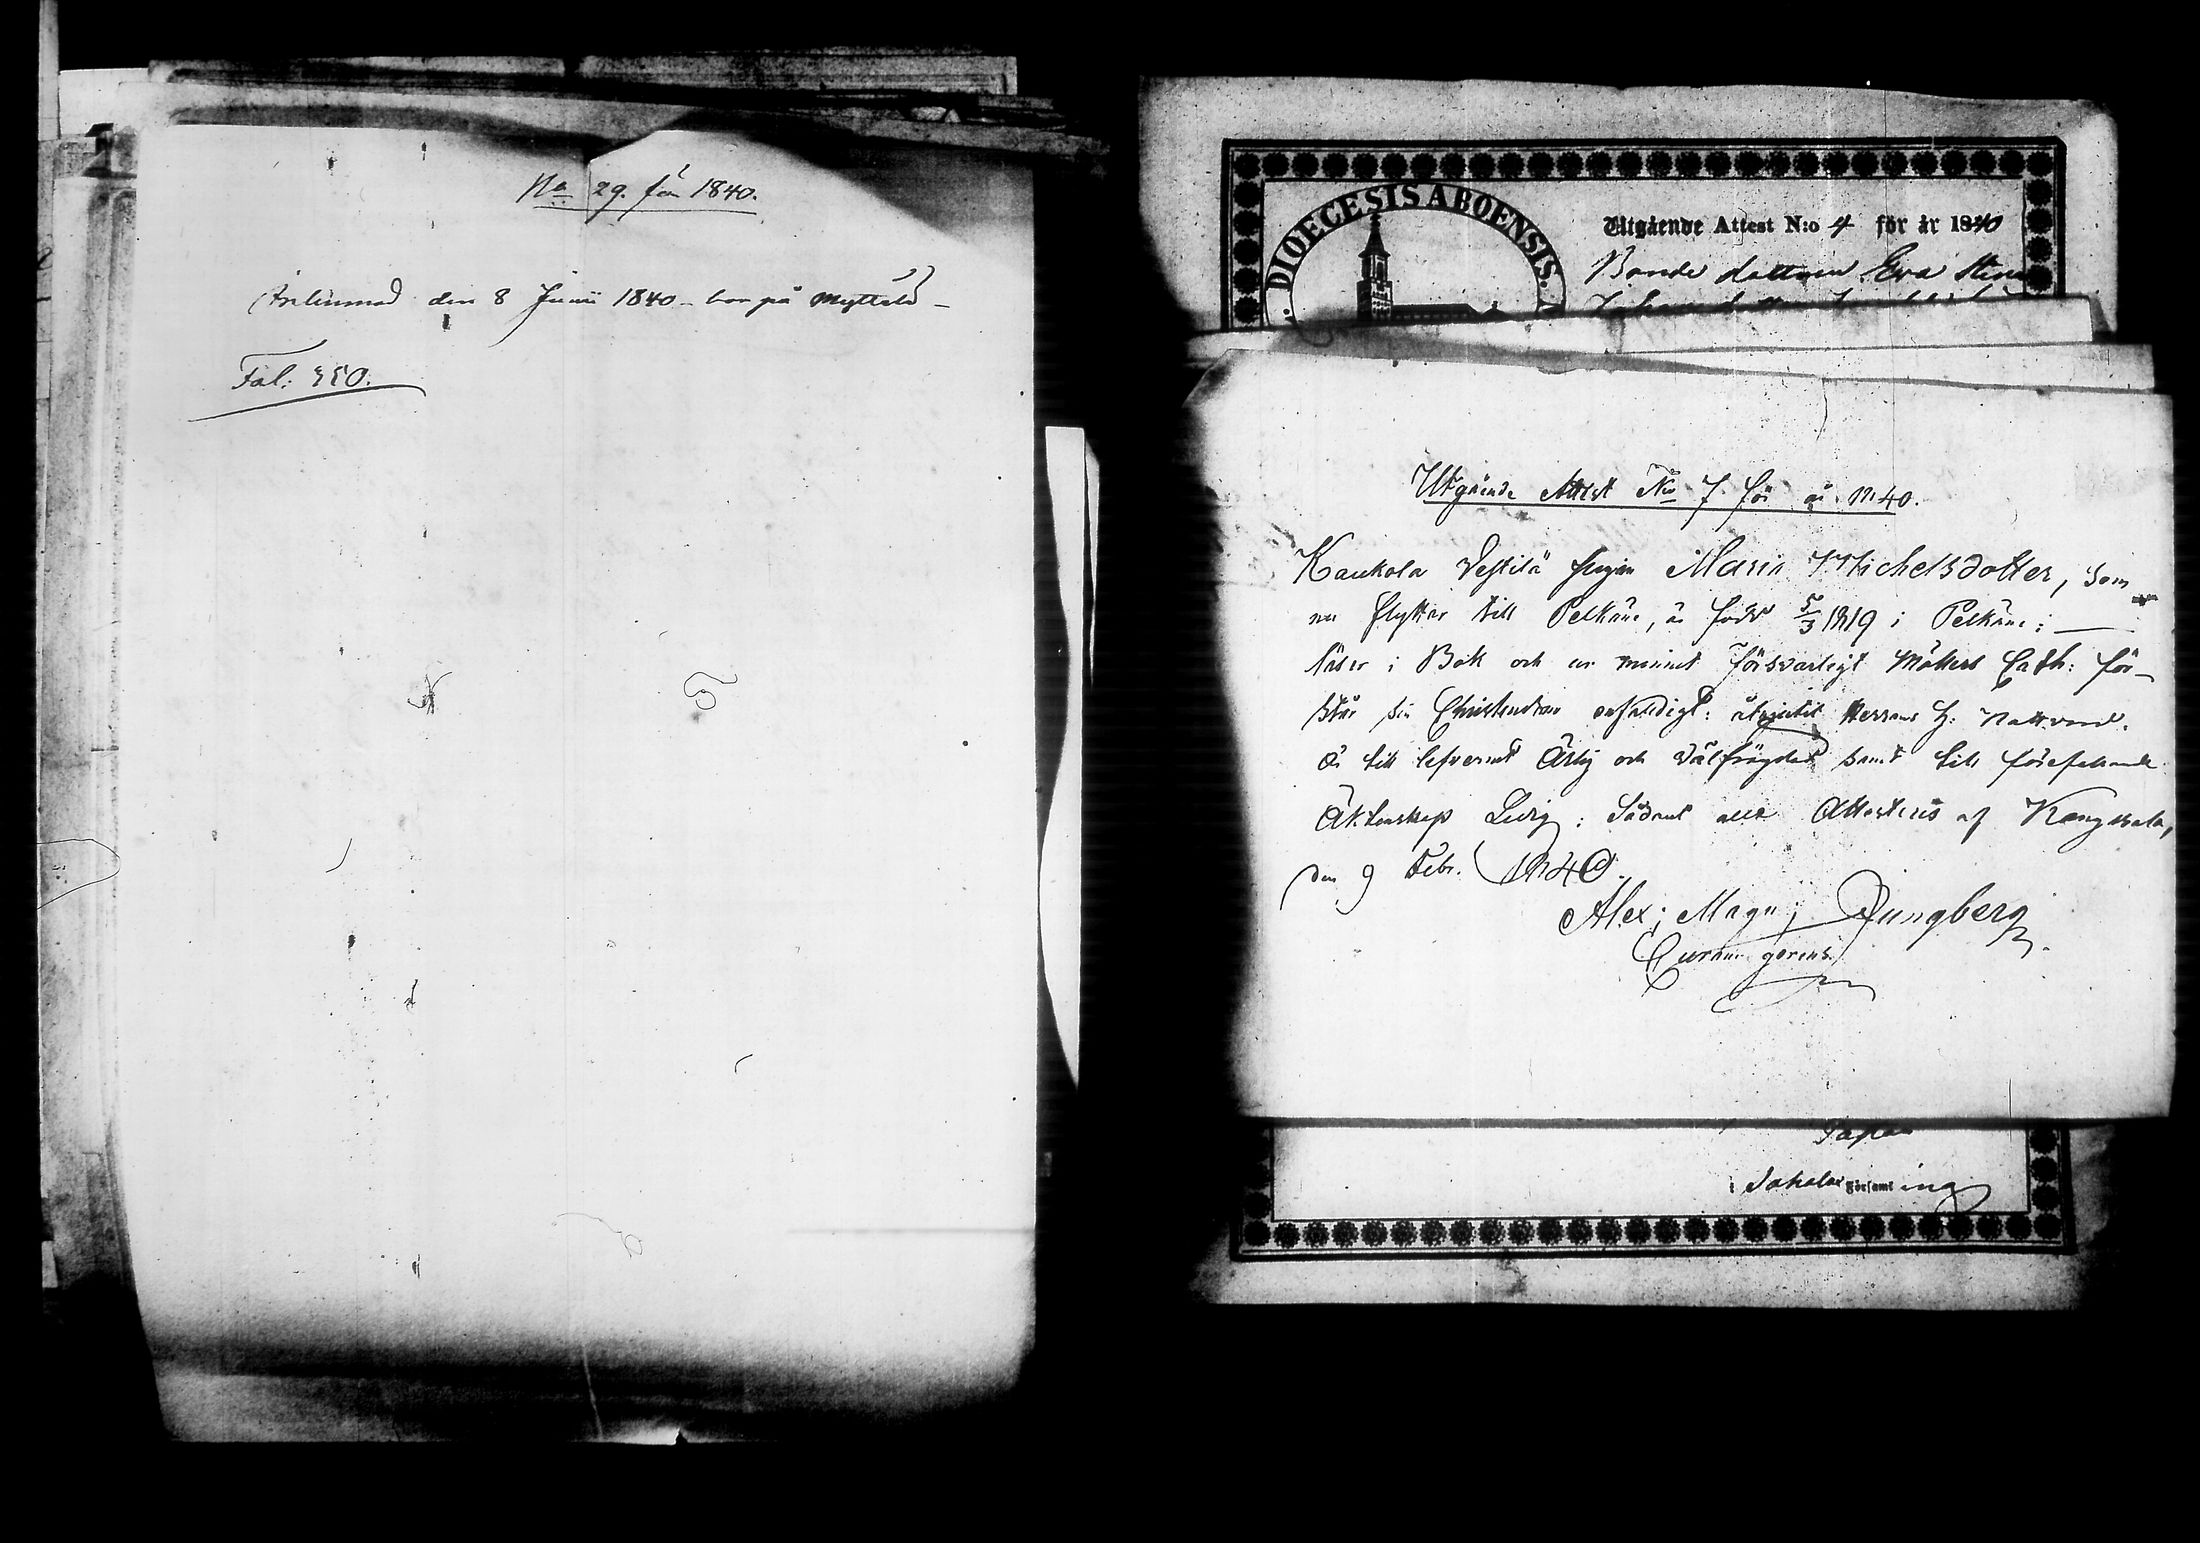 No 29. för 1840.
Ankommed den 8 Junii 1840 - bor på Myttälä -
Fol: 350.
DIOECESIS ABOENSIS.
Utgående Attest N:o 4 för år 1840
Bonde dottren Eva Stina
Utgående Attest No 7 för år 1840.
Kaukola Vestilä Maria Michelsdotter, som
nu flyttar till Pelkäne, är född 5/3 1819 i Pelkäne; —
läser i Bok och ur minnet försvarligt Möllers Cath: för-
står sin Christendom enfaldigt: åtnjutit Herrans H: Nattvard.
Är till lefvernet Ärlig och välfrägdad samt till förefallande
Äktenskap Ledig; Sådant Attesteras af Kangasala,
den 9 Febr. 1840.
Alex; Magn; Ljungberg
Curam gerens.
i Sahalax Församling